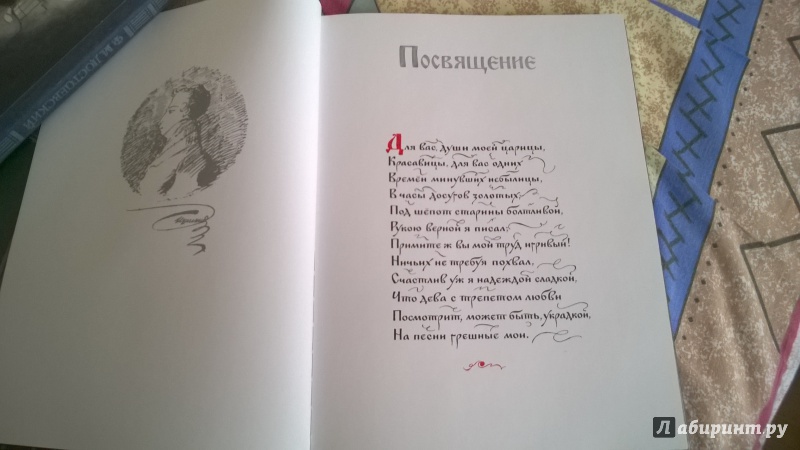 Ф. М. ДОСТОЕВСКИЙ
Посвящение
Для вас, души моей царицы,
Красавицы, для вас одних
Времен минувших небылицы,
В часы досугов золотых,
Под шепот старины болтливой,
Рукою верной я писал;
Примите ж вы мой труд игривый!
Ничьих не требуя похвал,
Счастлив уж я надеждой сладкой,
Что дева с трепетом любви
Посмотрит, может быть, украдкой,
На песни грешные мои.
Лабиринт.ру